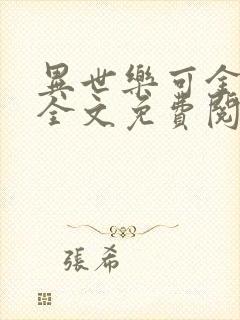 異世樂可全
全文免費閱
張希